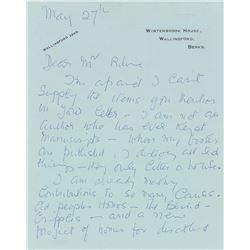 May 27th
WINTERBROOK HOUSE,
WALLINGFORD,
BERKS.
WALLINGFORD
Dear Mr
I'm afraid I can't
supply the items you mention
in your letter - I am not an
author who has ever kept
manuscripts - when my books
are published, I destroy all
things - they only litter a house.
I am already making
contributions to so many causes.
Old peoples Homes - the Blind -
Cripples - and a new
project of homes for disabled